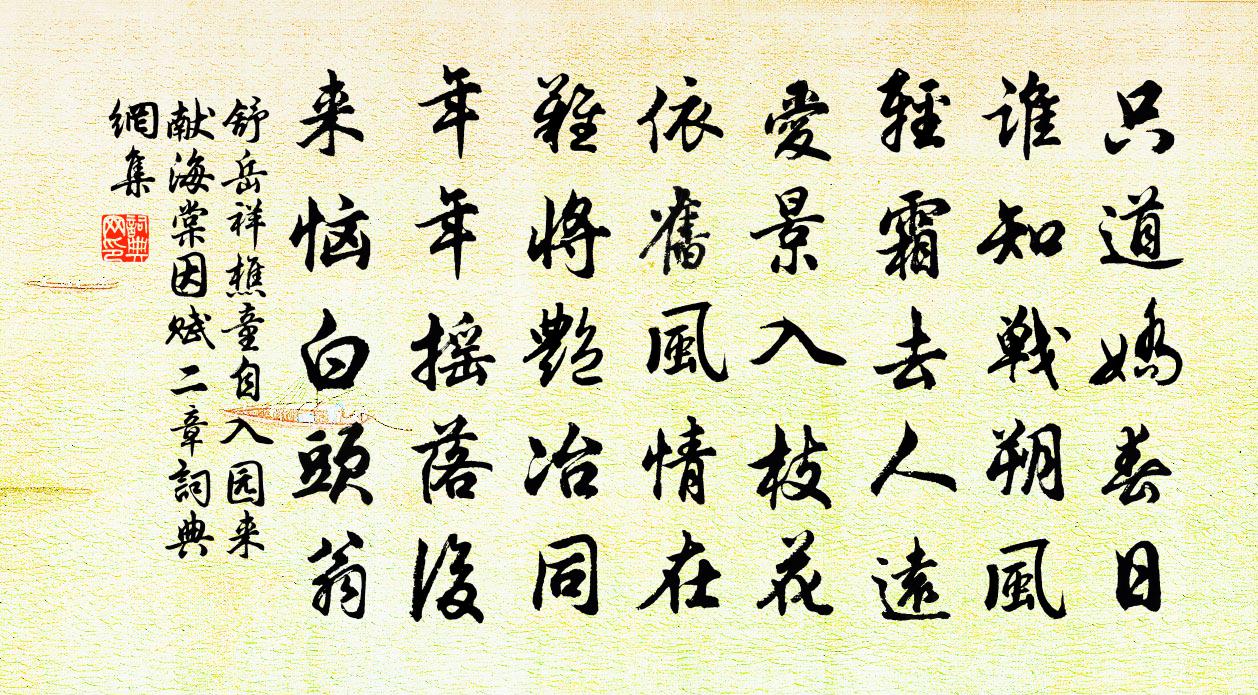 只道娇春日
谁知戰朔風
輕霜去人遠
愛景入枝花
依舊風情在
難將艷冶同
年年摇落後
来恼白頭翁
舒岳祥樵童自入园来
献海棠因赋二章詞典
網集
詞典
网印